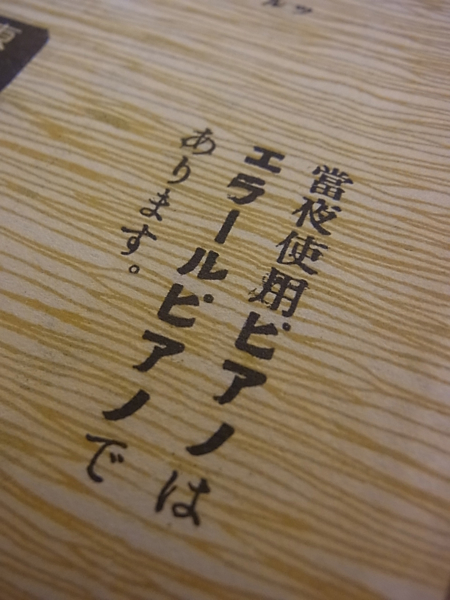 當夜使用ピアノは
エラールピアノで
あります。